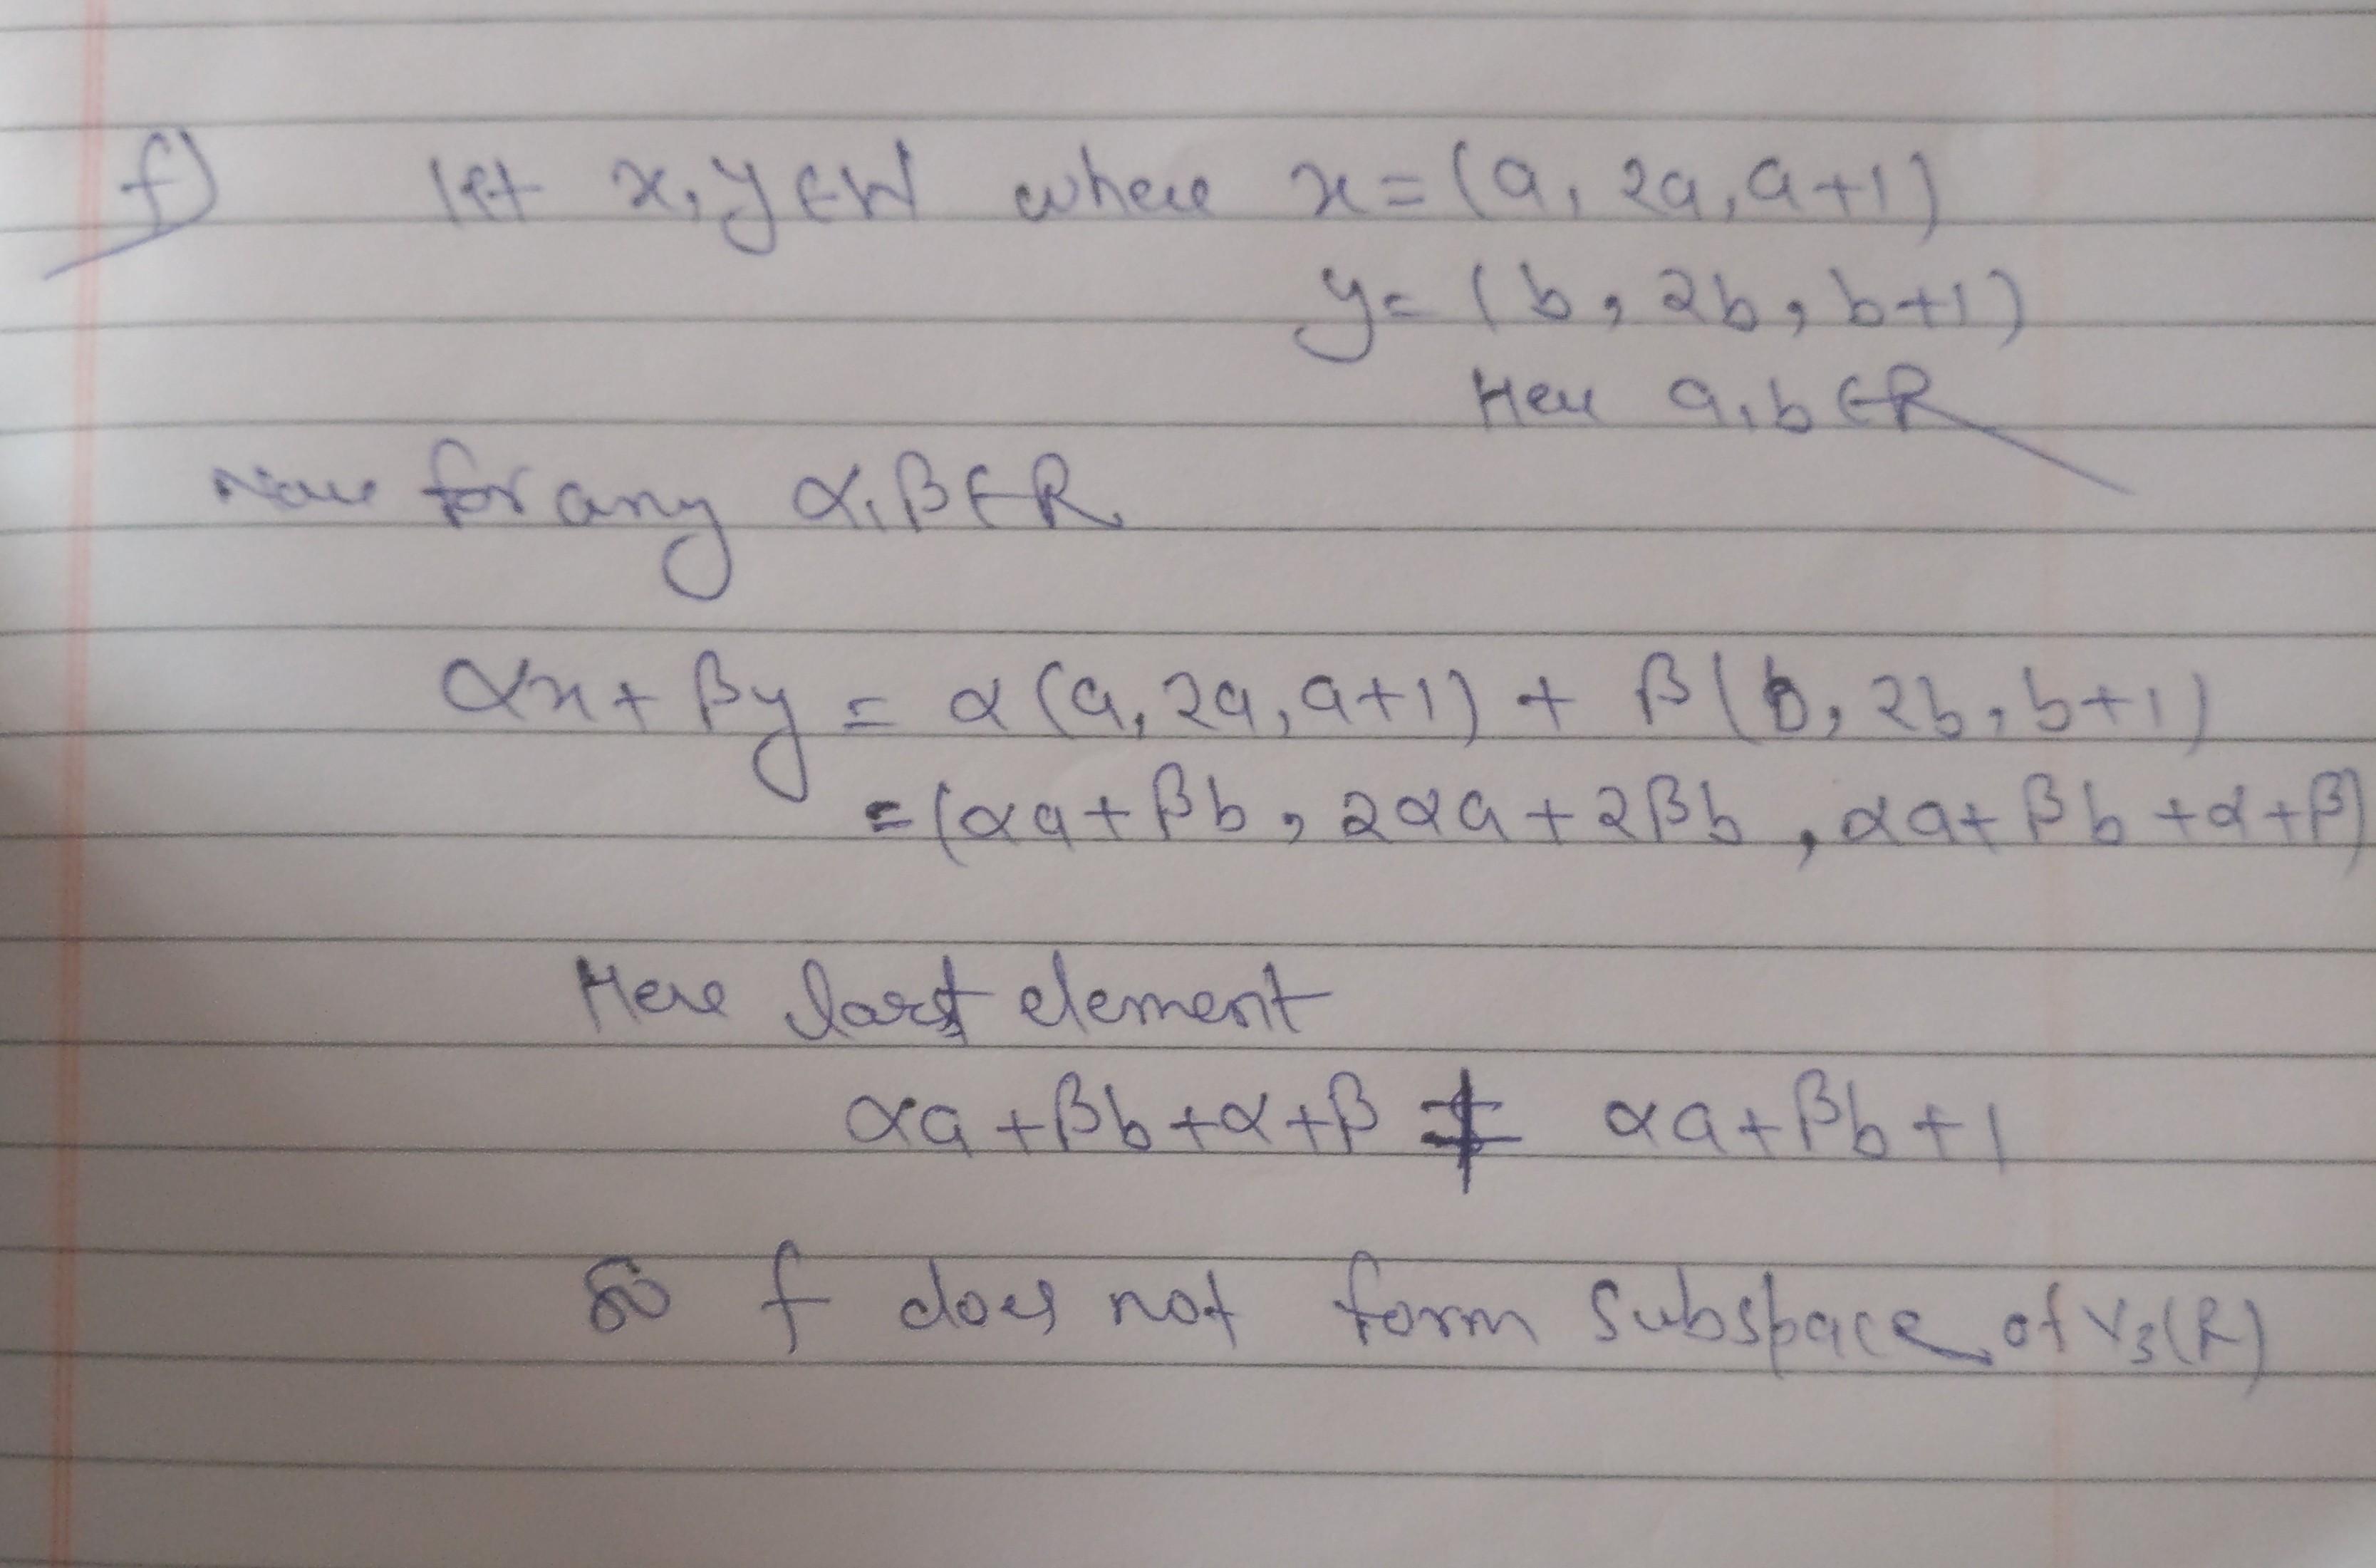 f) let x, y ∈ W where x = (a, 2a, a+1)
y = (b, 2b, b+1)
Here a, b ∈ R
Now for any α, β ∈ R
αx + βy = α(a, 2a, a+1) + β(b, 2b, b+1)
= (αa + βb, 2αa + 2βb, αa + βb + α + β)
Here last element
αa + βb + α + β ≠ αa + βb + 1
So f does not form subspace of V₃(R)